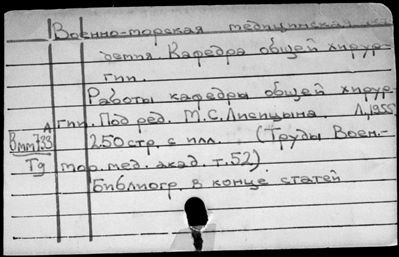 Военно-морская медицинская ака
демия. Кафедра общей хирур-
гии.
Работы кафедры общей хирур-
А гии. Под ред. М.С.Лисицына. Л., 1955
Вмм733 250 стр. с илл. (Труды Воен.-
Тд мор. мед. акад. т.52)
Библиогр. в конце статей